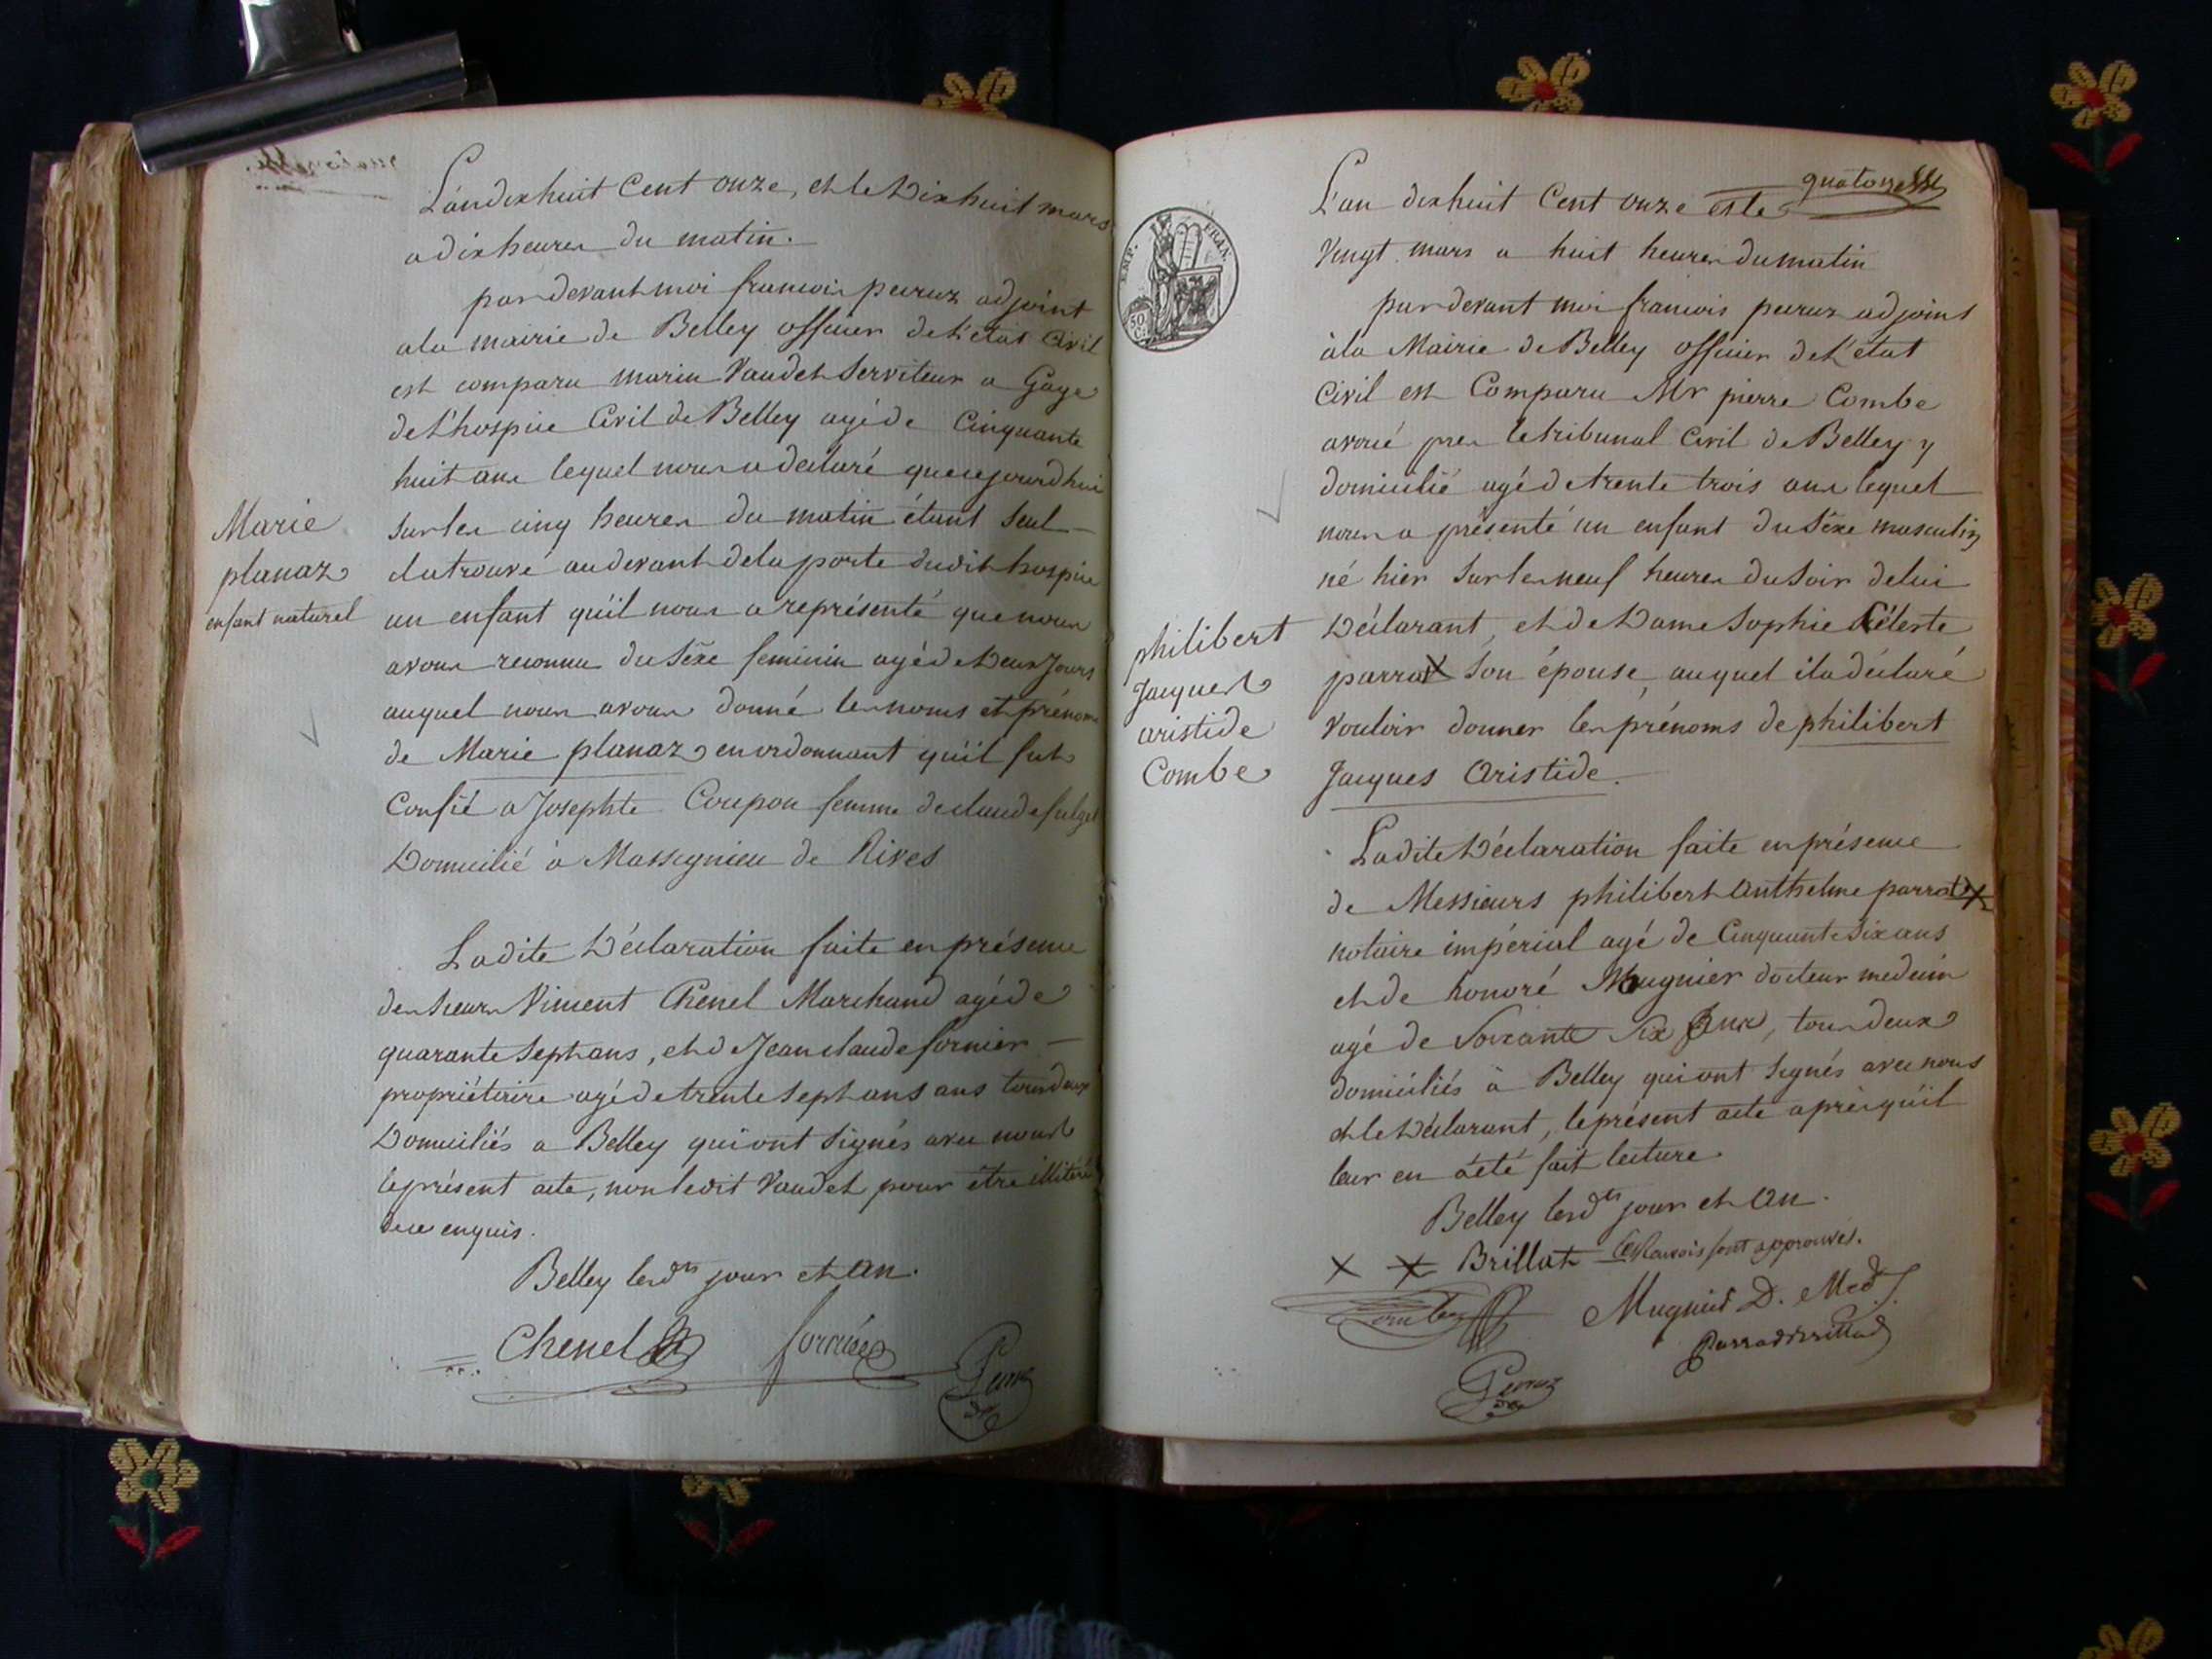 L'an dixhuit Cent onze, et le Dixhuit mars
a dix heures du matin.
par devant moi francois peruz adjoint
a la mairie de Belley officier de L'état Civil
est comparu marin Vaudet Serviteur a Gage
de L'hospice Civil de Belley agé de Cinquante
huit ans lequel nous a declaré que cejourdhui
sur les cinq heures du matin étant seul
il a trouvé au devant de la porte dudit hospice
un enfant qu'il nous a représenté que nous
avons reconnu du sexe feminin agé de Deux Jours
auquel nous avons donné les noms et prénoms
de Marie planaz en ordonnant qu'il fut
Confié a Josephte Coupon femme de claude
Domicilié à Massignieu de Rives
Marie
planaz
enfant naturel
Ladite Déclaration faite en présence
des sieurs Vincent Chenel Marchand agé de
quarante sept ans, et de Jean claude fornier
propriétaire agé de trente sept ans ans tous deux
Domiciliés a Belley qui ont signés avec nous
le présent acte, non ledit Vaudet pour être illitéré
de ce enquis.
Belley lesdts jour et an.
Chenel fornier
Peruz
quatorze
EMP. FRAN.
50 C.
L'an dixhuit Cent onze et le
Vingt mars a huit heures du matin
par devant moi francois peruz adjoint
à la Mairie de Belley officier de L'état
Civil est Comparu Mr pierre Combe
avoué pres le tribunal Civil de Belley y
domicilié agé de trente trois ans lequel
nous a présenté un enfant du sexe masculin
né hier sur les neuf heures du soir de lui
Déclarant, et de Dame Sophie Céleste
parrat X son épouse, auquel il a déclaré
vouloir donner les prénoms de philibert
Jacques Aristide.
philibert
Jacques
aristide
Combe
Ladite Déclaration faite en présence
de Messieurs philibert Anthelme parrat X
notaire impérial agé de Cinquante Six ans
et de honoré Mugnier docteur medecin
agé de Soixante Six ans, tous deux
domiciliés à Belley qui ont signés avec nous
et le Déclarant, le présent acte après qu'il
leur en à été fait lecture.
Belley lesdts jour et An.
X X Brillat les Renvois sont approuvés.
Combe Mugnier D. Med
Parrat Brillat
Peruz